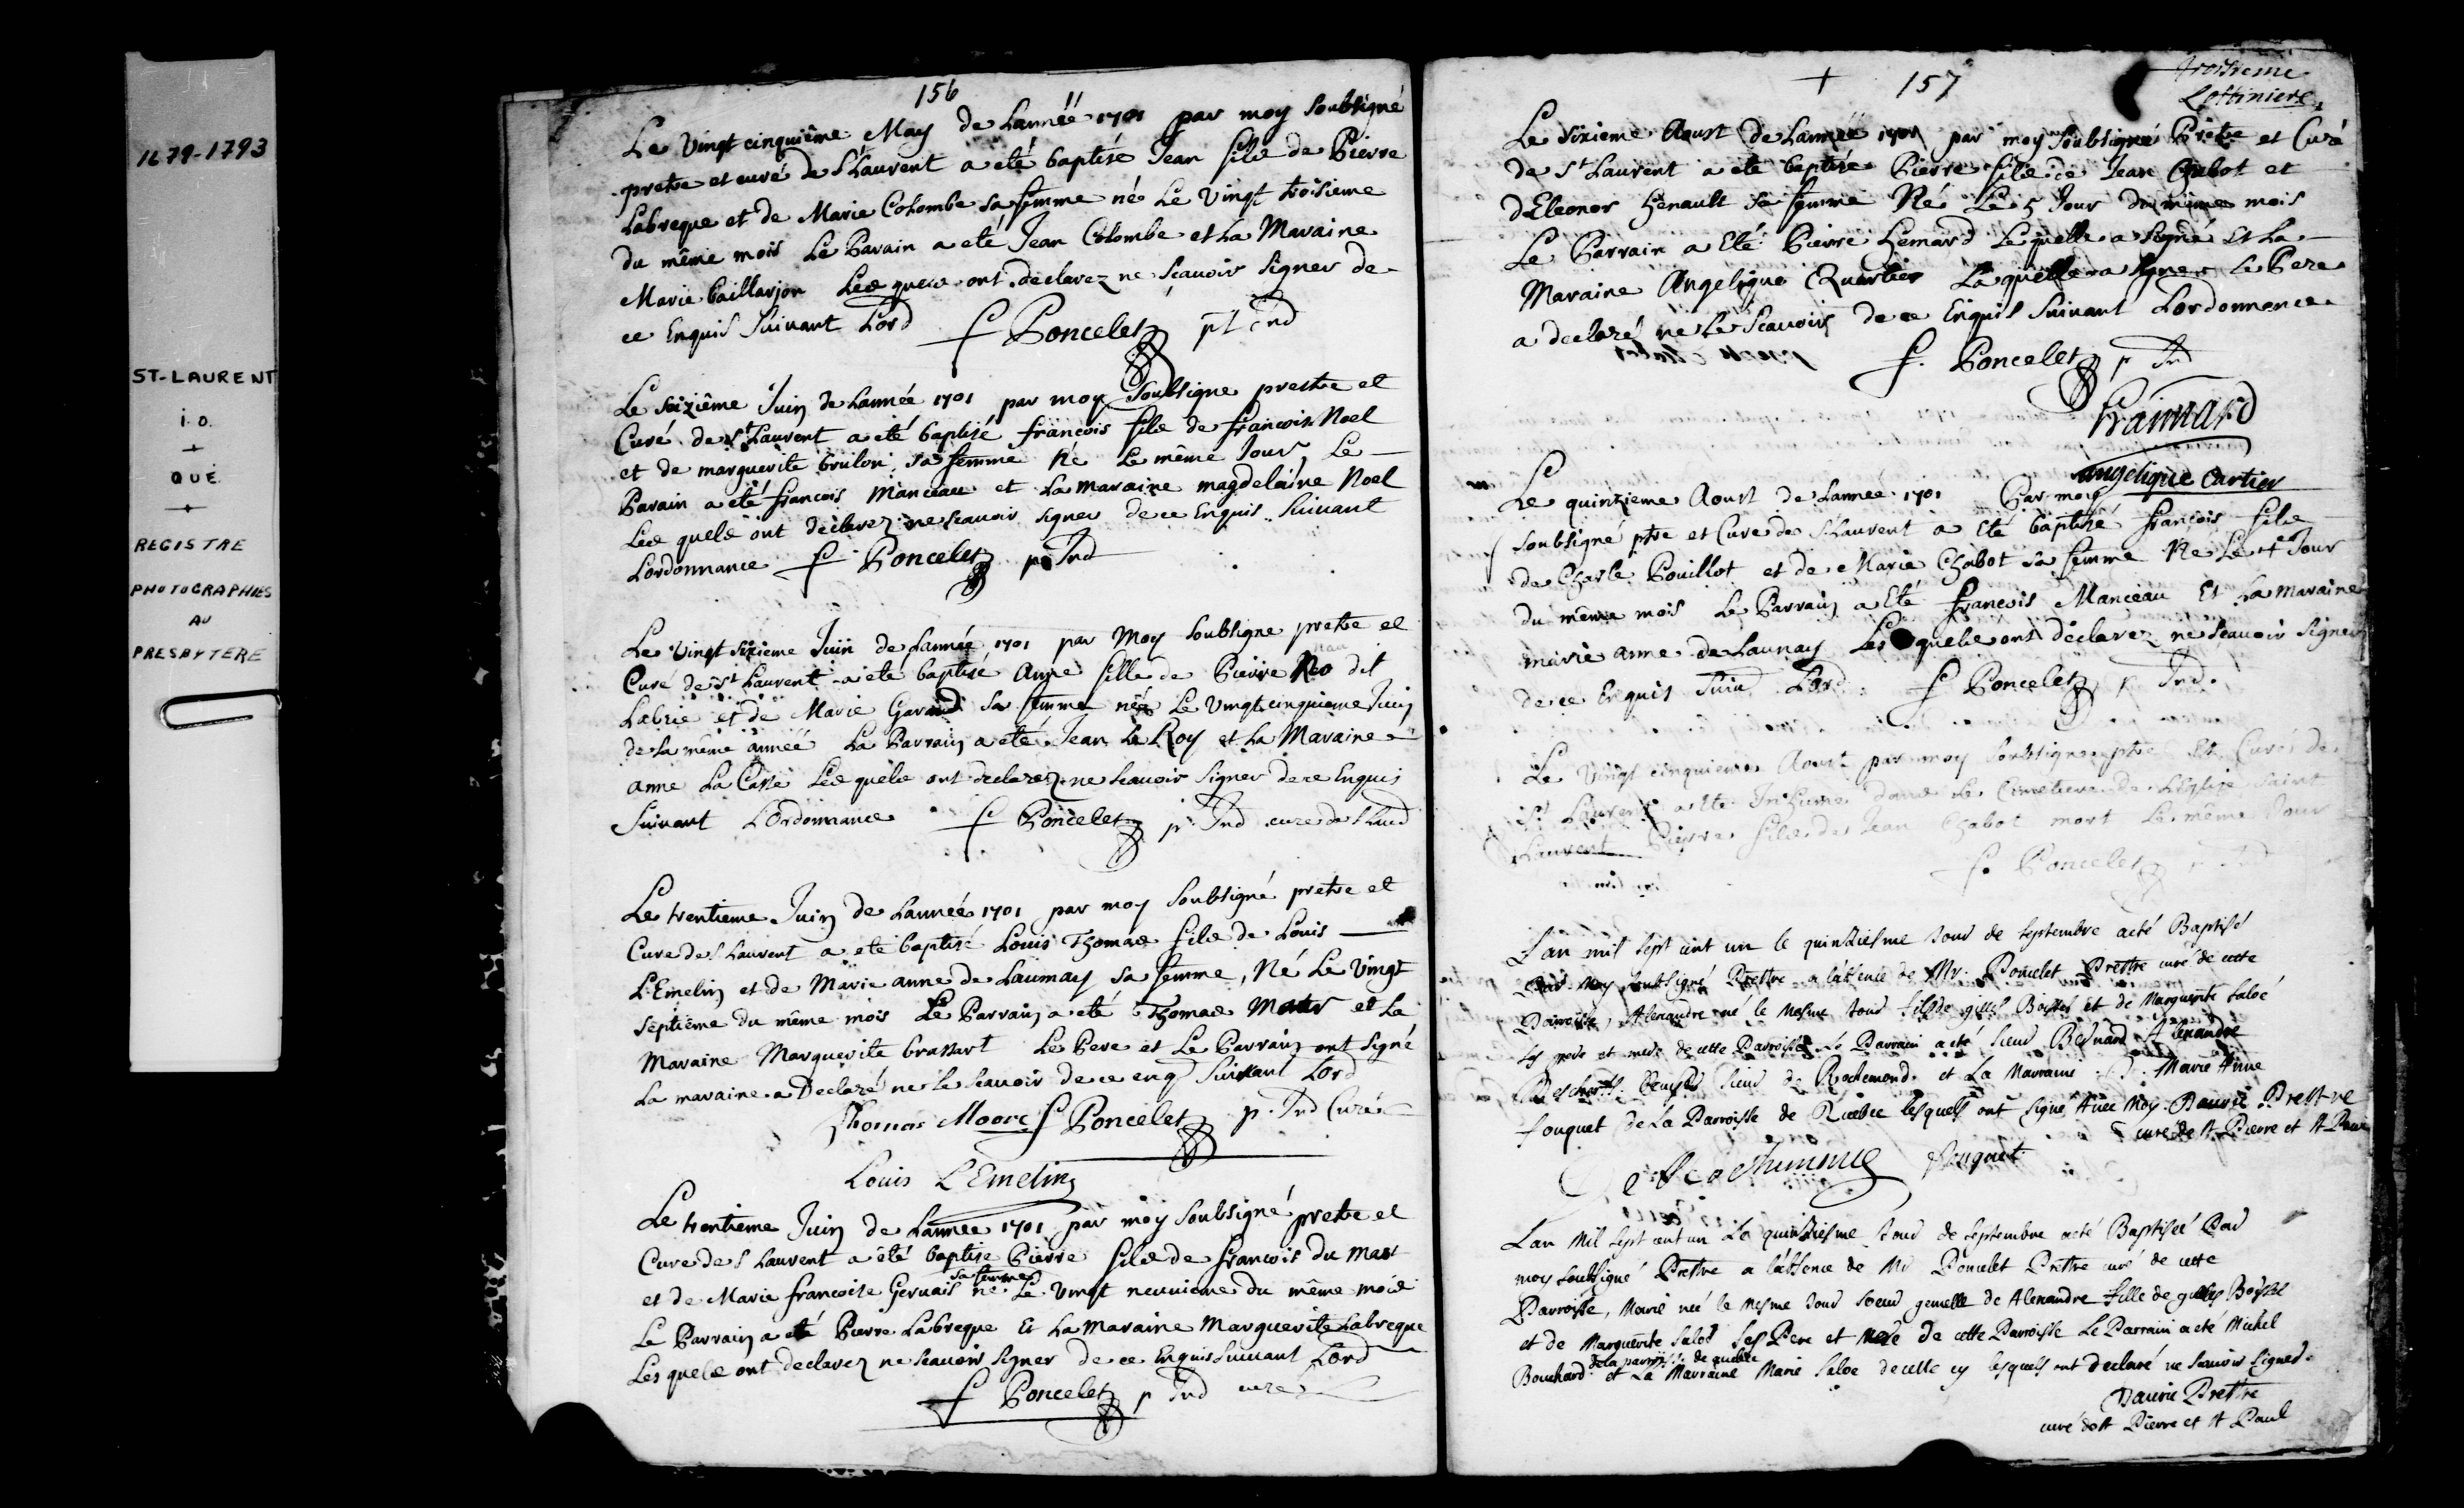 1679-1793
ST-LAURENT
i.o.
+
QUÉ.
+
REGISTRE
PHOTOGRAPHIES
AU
PRESBYTERE
156
Le Vingt cinquième May de Lannéé 1701 par moy soubsigné
pretre et curé de S Laurent a eté baptisé Jean fils de Pierre
Labreque et de Marie Colombe sa femme né Le Vingt troisieme
du même mois Le Parain a eté Jean Colombe et La Maraine
Marie baillarjon Les quels ont declarez ne Scauoir Signer de
ce Enquis Suiuant Lord f Poncelet pt ind
Le Seizième Juin de Lannée 1701 par moy Soubsigne prestre et
Curé de St Laurent a eté baptisé francois fils de francois Noel
et de marguerite brulon sa femme Né Le même Jour, Le
Parain a eté francois Manceau et La maraine magdelaine Noel
Les quels ont declarez ne scauoir signer de ce Enquis Suiuant
Lordonnance f Poncelet p Ind
Le Vingt Sixieme Juin de Lannée 1701 par Moy Soubsigne pretre et
Curé de St Laurent a eté baptisé Anne fille de Pierre Neo dit
Labrie et de Marie Garand Sa femme née Le Vingt cinquieme Juin
de La même année La Parrain a eté Jean Le Roy et La Maraine
anne La Casse Les quels ont declarez ne Scauoir Signer de ce Enquis
Suiuant LOrdonnance f Poncelet p Ind curé de S Laud
Le trentieme Juin de Lannée 1701 par moy Soubsigné pretre et
Cure de S Laurent a eté baptisé Louis Thomas fils de Louis
L'Emelin et de Marie anne de Launay Sa femme, Né Le Vingt
Septieme du même mois Le Parrain a eté Thomas Mour et La
Maraine Marguerite brassart Le Pere et Le Parrain ont Signé
La maraine a Declaré ne le Scauoir de ce enq Suiuant Lord
Thomas Moore f Poncelet p. Ind Curé
Louis L'Emelin
Le trentieme Juin de Lannee 1701 par moy Soubsigné pretre et
Cure de S Laurent a été baptise Pierre fils de francois du Mas
sa femme
et de Marie francoise Gervais né Le Vingt neuuieme du même mois
Le Parrain a eté Pierre Labreque Et La Maraine Marguerite Labreque
Les quels ont declarez ne Scauoir Signer de ce Enquis Suiuant Lord
f Poncelet p Ind curé
+ 157
troisieme
Lotbiniere
Le Sixieme Aoust de Lannée 1701 par moy Soubsigné Prêtre et Curé
de St Laurent a ete baptisé Pierre fils de Jean Chabot et
dEleonor henault Sa femme Né Le 5 Jour du même mois
Le Parrain a Eté Pierre hemard Lequelle a Signé Et La
Maraine Angelique Quartier Laquelle a Signe Le Pere
a declaré ne Le Scauoir de ce Enquis Suiuant Lordonnance
f. Poncelet p Ind
haimard
angelique Cartier
Le quinzieme Aoust de Lannee 1701 Par moy
Soubsigné ptre et Cure de S Laurent a Eté baptisé francois fils
de Charle Pouillot et de Marie Chabot sa femme Né Le Jour
du même mois Le Parrain a Eté francois Manceau Et La Maraine
marie anne de Launay Les quels ont declarez ne Scauoir Signer
de ce Enquis Suiu Lord f Poncelet p Ind.
Le Vingt cinquieme Aoust par moy Soubsigne ptre Et Curé de
St Laurent a Ete Inhumé dans Le Cimetiere de LEglise Saint
Laurent Pierre fils de Jean Chabot mort Le même Jour
f. Poncelet p Ind
Lan mil sept cent un le quinziesme Jour de septembre a eté Baptisé
Par moy soubsigné Prestre a labsence de Mr. Poncelet Prestre curé de cette
Parroisse, Alexandre né le mesme Jour fils de gilles Boissel et de Marguerite Saloé
Ses pere et mere de cette Parroisse Le Parrain a eté Sieur Bernard Alexandre
Sieur de Rochemond et La Marraine Marie Anne
fouquet de La Parroisse de Quebec lesquels ont signé Auec Moy Dauric Prestre
curé de St Pierre et St Paul
fouquet
Lan Mil Sept cent un Le quinziesme Jour de septembre a eté Baptiseé Par
moy soubsigné Prestre a labsence de Mr Poncelet Prestre curé de cette
Parroisse, Marie neé le mesme Jour soeur gemelle de Alexandre fille de gilles Boissel
et de Marguerite Saloé Ses Pere et Mere de cette Parroisse Le Parrain a eté Michel
de la parroisse de quebec
Bouchard et La Marraine Marie Saloe de celle cy lesquels ont declaré ne scauoir signer.
Dauric Prestre
curé de St Pierre et St Paul